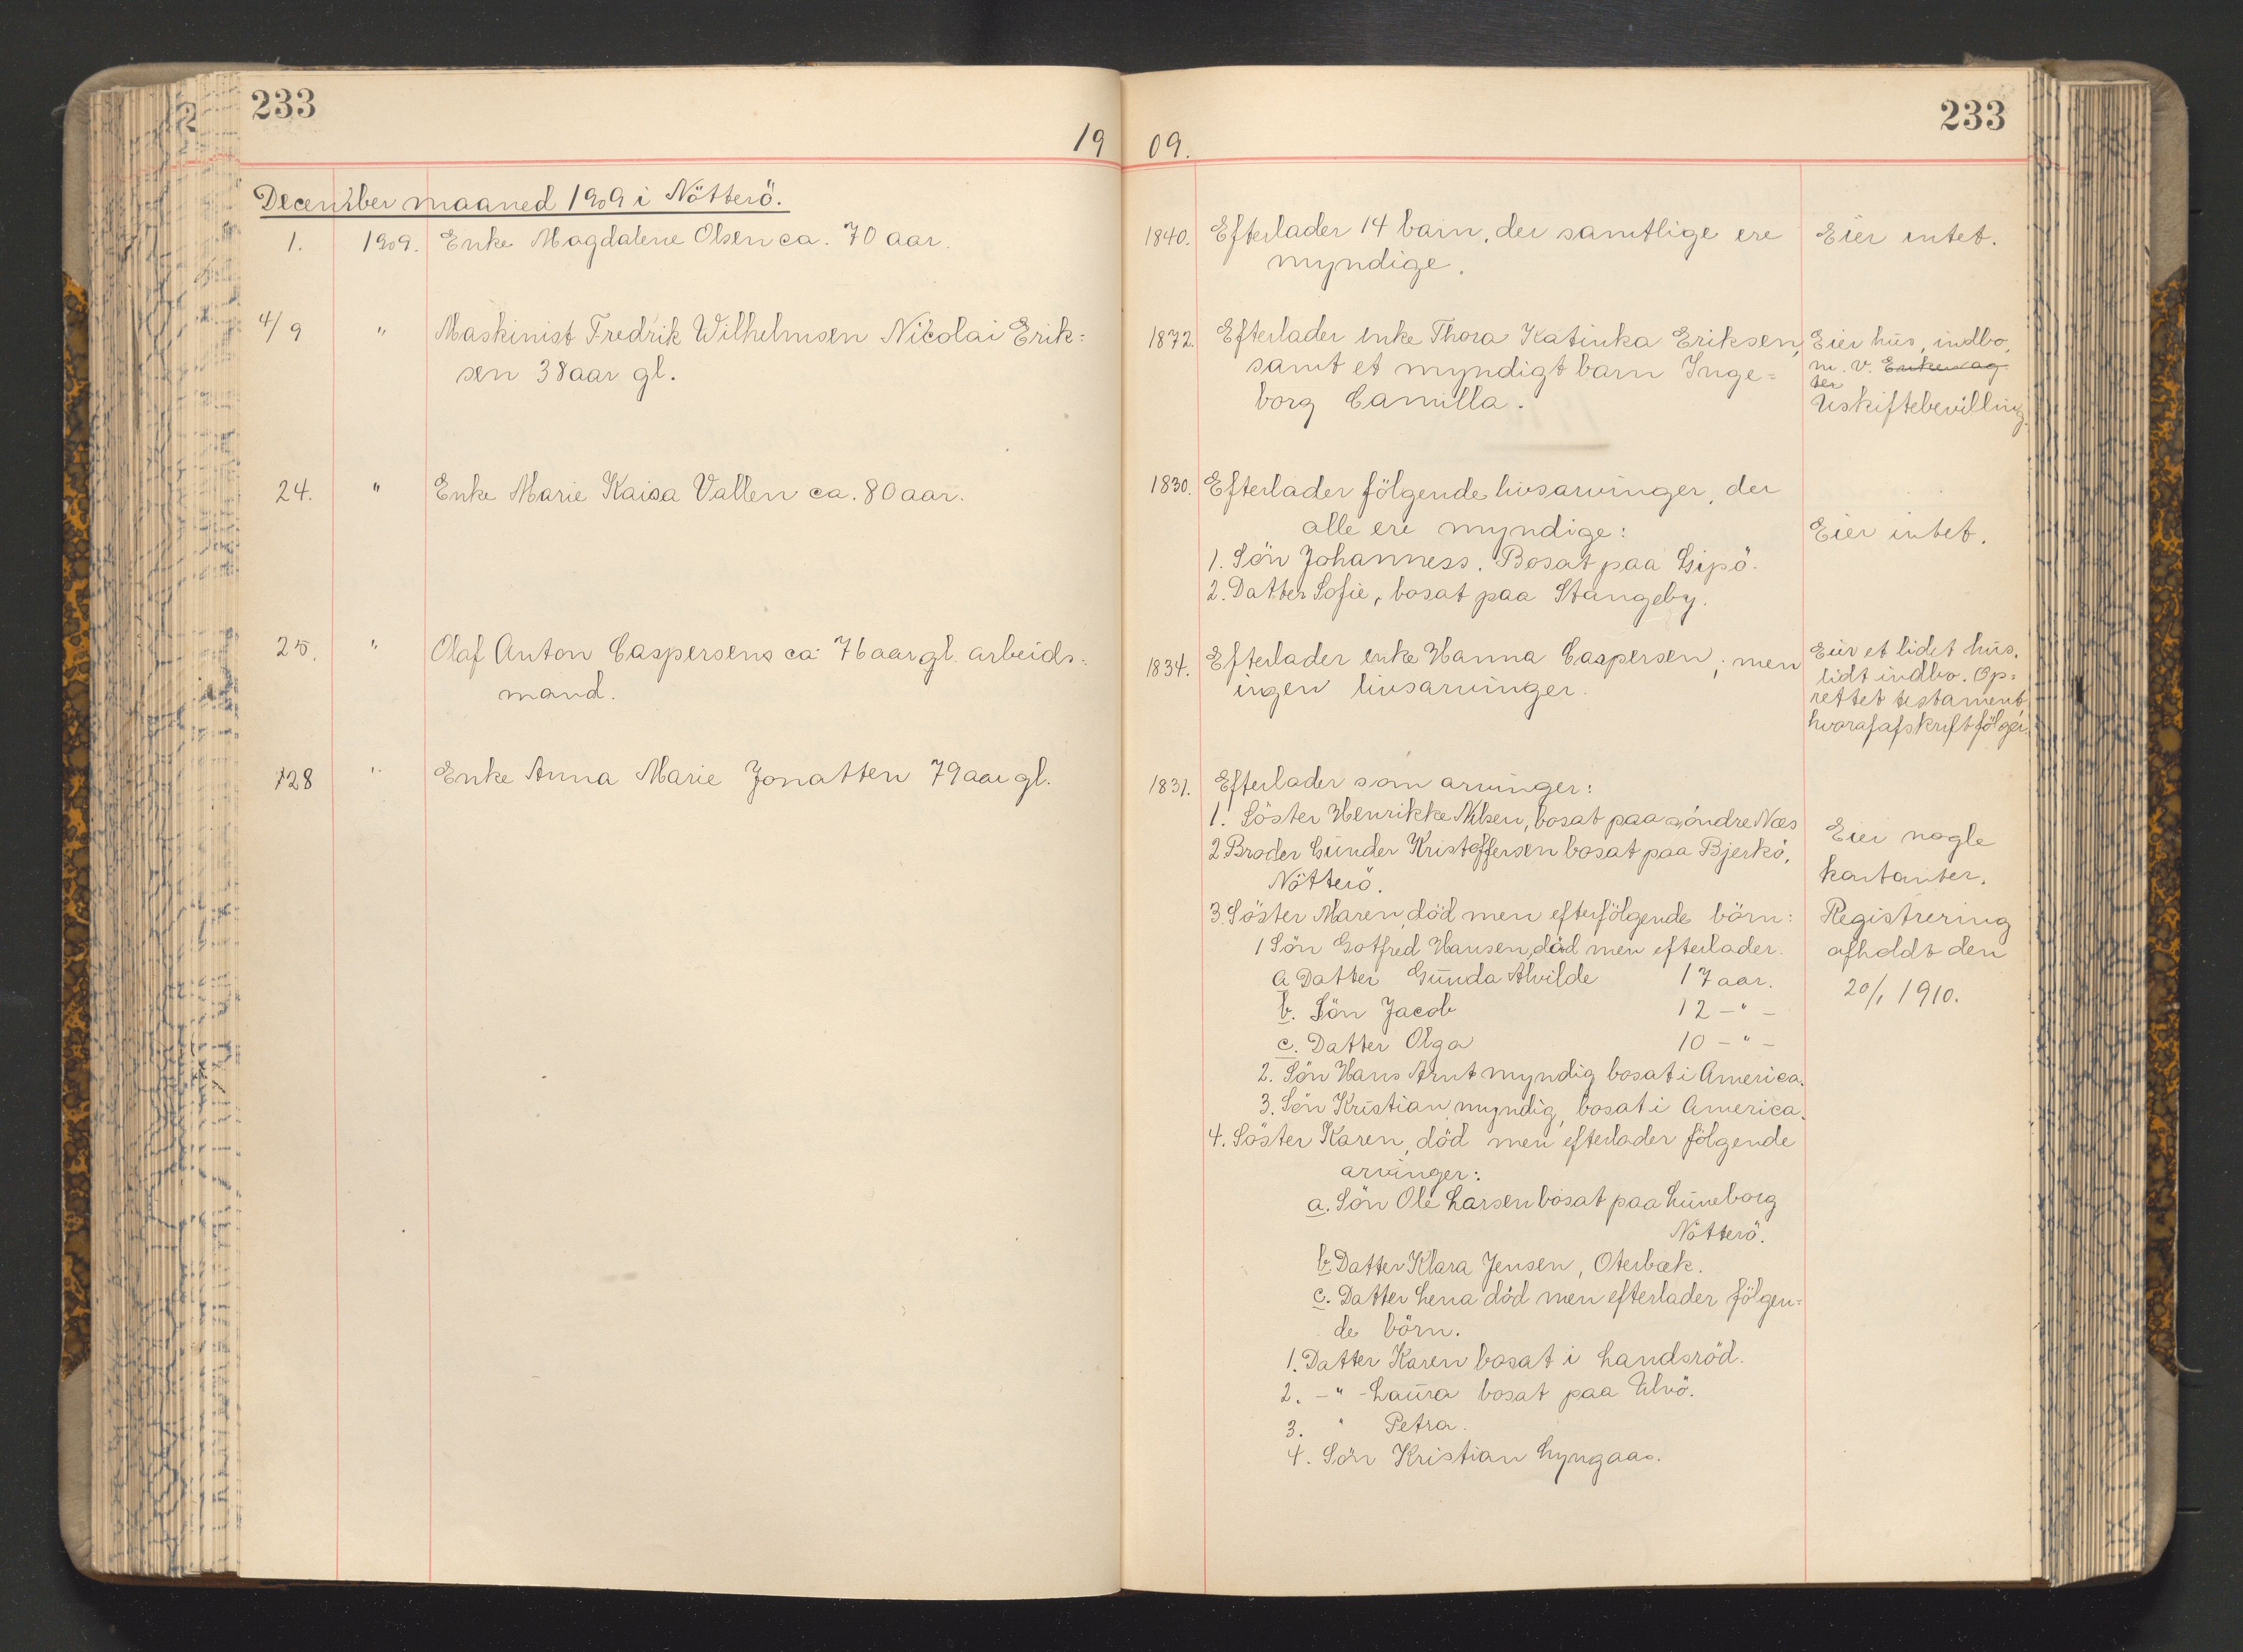 233
233
19 09.
December maaned 1909 i Nötterö.
1. 1909. Enke Magdalene Olsen ca. 70 aar.
1840. Efterlader 14 barn, der samtlige ere
myndige.
Eier intet.
4/9 " Maskinist Fredrik Wilhelmsen Nicolai Erik=
sen 38 aar gl.
1872. Efterlader enke Thora Katinka Eriksen,
samt et myndigt barn Inge=
borg Camilla.
Eier hus, indbo,
m. v.
Uskiftebevilling.
24. " Enke Marie Kaisa Vallen ca. 80 aar.
1830. Efterlader fölgende livsarvinger, der
alle ere myndige:
1. Sön Johanness. Bosat paa Gipö.
2. Datter Sofie, bosat paa Stangeby.
Eier intet.
25. " Olaf Anton Caspersens ca 76 aar gl. arbeids=
mand.
1834. Efterlader enke Hanna Caspersen, men
ingen livsarvinger.
Eier et lidet hus,
lidt indbo. Op=
rettet testament,
hvoraf afskrift fölger.
28 " Enke Anna Marie Jonatten 79 aar gl.
1831. Efterlader som arvinger:
1. Söster Henrikke Nilsen, bosat paa söndre Næs
2 Broder Gunder Kristoffersen bosat paa Bjerkö,
Nötterö.
3. Söster Maren, död men efterfölgende börn:
1 Sön Gotfred Hansen, död men efterlader.
a Datter Gunda Alvilde 17 aar.
b. Sön Jacob 12 - " -
c. Datter Olga 10 - " -
2. Sön Hans Arnt myndig bosat i America.
3. Sön Kristian, myndig, bosat i America.
4. Söster Karen, död men efterlader fölgende
arvinger:
a. Sön Ole Larsen bosat paa Luneborg
Nötterö.
b. Datter Klara Jensen, Oterbæk.
c. Datter Lena död men efterlader fölgen=
de börn.
1. Datter Karen bosat i Landsröd.
2. - " - Laura bosat paa Ulvö.
3. " Petra.
4. Sön Kristian Lyngaas.
Eier nogle
kontanter.
Registrering
afholdt den
20/1 1910.